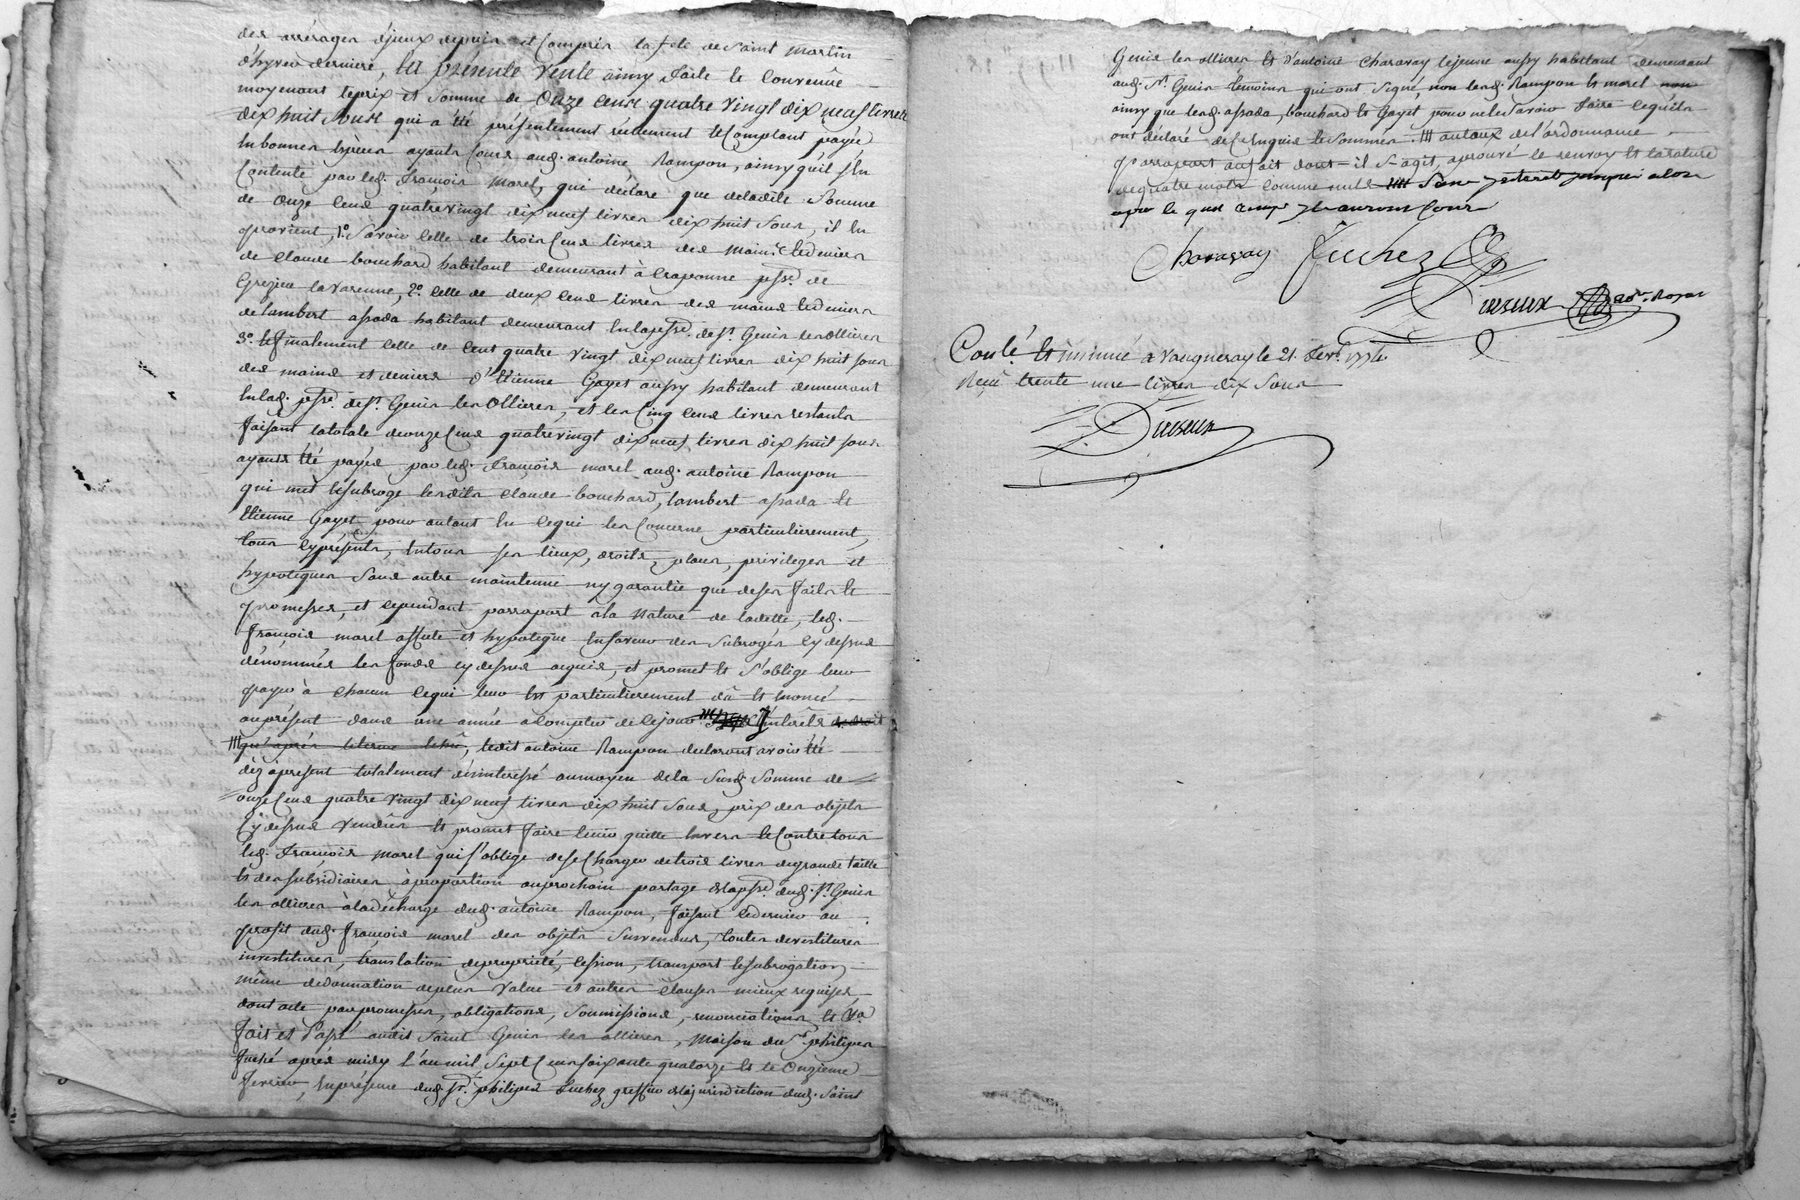 des arrérages éjeux depuis et Compris la fete de Saint Martin
d'hyver derniere, la presente Vente ainsy faite et Convenüe
moyenant le prix et Somme de Onze Cens quatre Vingt dix neuf livres
dix huit Sous qui a été présentement réellement et Comptant payée
En bonnes Espèces ayants Cours aud. antoine Rampon, ainsy qu'il s'en
Contente par led. françois Morel, qui déclare que de ladite Somme
de Onze Cens quatre vingt dix neuf livres dix huit Sous, il en
provient, 1º. Savoir Celle de trois Cens livres des mains et deniers
de Claude bouchard habitant demeurant à Craponne psse. de
Grezieu la varenne, 2º. Celle de deux Cens livres des mains et deniers
de lambert assada habitant demeurant En la psse. de St. Genis les ollieres
3º. et finalement Celle de Cent quatre Vingt dix neuf livres dix huit sous
des mains et deniers d'Etienne Gayet aussy habitant demeurant
En lad. psse. de St. Genis les Ollieres, et les Cinq Cens livres restants
faisant la totale de onze Cens quatre vingt dix neuf livres dix huit sous
ayants été payés par led. françois morel aud. antoine Rampon
qui met et subroge lesdits Claude bouchard, lambert assada et
Etienne Gayet pour autant En Ce qui les Concerne particulierement,
tous Cy présents, En tous ses lieux, droits, places, privileges et
hypoteques Sans autre maintenüe ny garantie que de ses faits et
promesses, et Cependant par raport à la Nature de la dette, led.
françois morel affecte et hypoteque En faveur des Subrogés Cy dessus
dénommés les fonds cy dessus acquis, et promet et s'oblige leur
payer à chacun Ce qui leur Est particulierement dû Et Enoncé
au présent dans une année a Compter de Ce jour intérêts
qu'après le terme Echû, ledit antoine Rampon declarant avoir Eté
dèz àprésent totalement désinteressé au moyen de la Susd. Somme de
onze Cens quatre Vingt dix neuf livres dix huit Sous, prix des objets
Cy dessus Vendûs Et promet faire tenir quitte Envers et Contre tous
led. françois morel qui s'oblige de se Charger de trois livres de grande taille
Et des subsidiaires à proportion au prochain partage de la psse. dud. St. Genis
les ollieres à la décharge dud. antoine Rampon, faisant Ce dernier au
profit dud. françois morel des objets Survendus, toutes devestitures
investitures, translation de proprieté, Cession, transport et subrogation
même de donnation de plus Value et autres Clauses mieux requises
dont acte par promesses, obligations, Soumissions, renonciations Et Ca
fait et Passé audit Saint Genis les ollieres, maison du Sr. philipes
fuché après midy l'an mil Sept Cens soixante quatorze Et le Onzieme
fevrier, En présence dud. Sr. philipes fuchez greffier de la jurisdiction dud. Saint
Genis les ollieres Et d'antoine Charavay lejeune aussy habitant demeurant
aud. St. Genis temoins qui ont Signé, non lesd. Rampon Et morel non
ainsy que lesd. assada, bouchard Et Gayet pour ne le Savoir faire Ce qu'ils
ont déclaré de Ce Enquis et Sommés. autaux de l'ordonnance
par raport au fait dont il s'agit, aprouvé le renvoy Et la rature
de quatre mots Comme nuls Sans intérêt jusqu'a alors
après le quel temps Ils auront Cours
Charavay fuchez
Dresseux
Conlé. Et insinué a Vaugneray le 21. fevr. 1774
Reçu trente une livres dix Sous
Dresseux